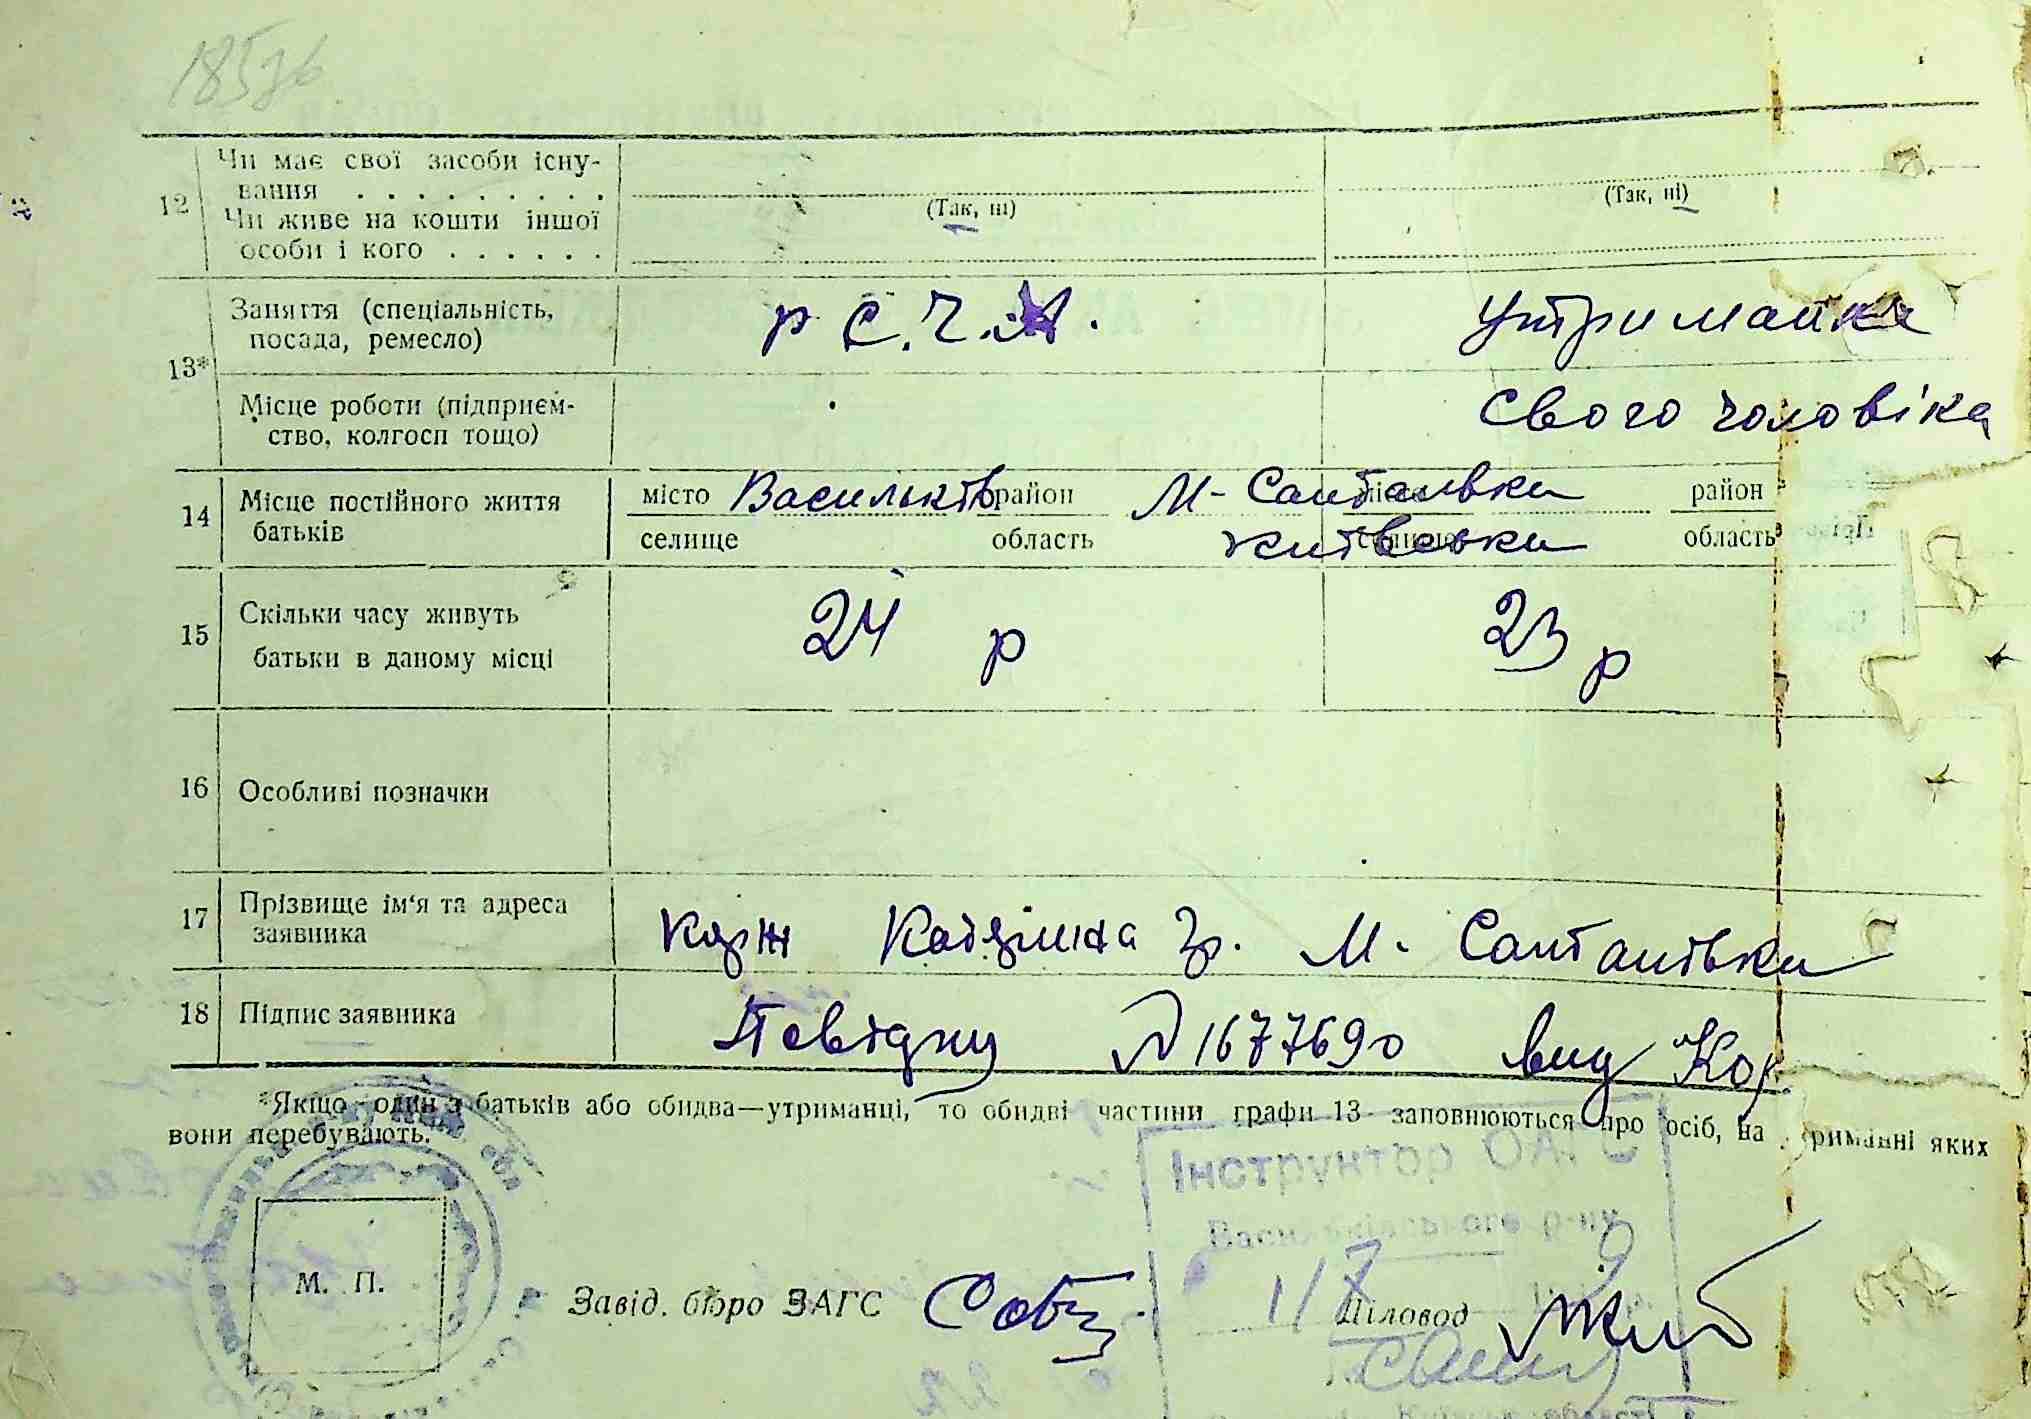 1857б
12 Чи має свої засоби існу-
вання . . . . . . . . .
(Так, ні) (Так, ні)
Чи живе на кошти іншої
особи і кого . . . . . .
13* Заняття (спеціальність, р С.Ч.А. Утриманка
посада, ремесло)
Місце роботи (підприєм- свого чоловіка
ство, колгосп тощо)
14 Місце постійного життя місто Васильків район М-Салтанівка місто район
батьків селище область Київська селище область
15 Скільки часу живуть 24 р 23 р
батьки в даному місці
16 Особливі позначки
17 Прізвище ім'я та адреса Корж М. Салтанівка
заявника
18 Підпис заявника № 1677690 вид Кор
*Якщо один з батьків або обидва—утриманці, то обидві частини графи 13 заповнюються про осіб, на утриманні яких
вони перебувають.
Інструктор ОАГС
Васильківського р-ну
М. П. Завід. бюро ЗАГС Діловод